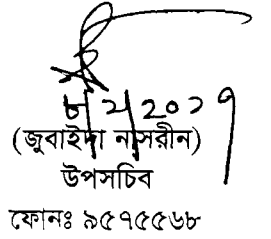 ৮/২/২০১৭
(জুবাইদা নাসরীন)
উপসচিব
ফোনঃ ৯৫৭৫৫৬৮